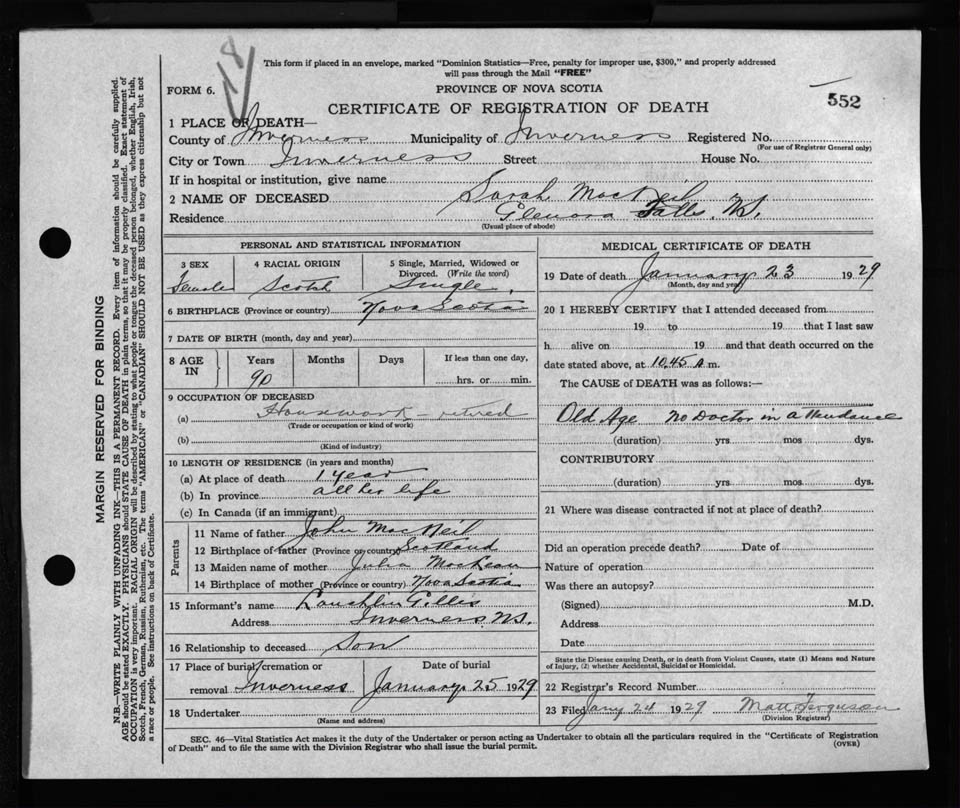 18
This form if placed in an envelope, marked "Dominion Statistics—Free, penalty for improper use, $300," and properly addressed
will pass through the Mail "FREE"
FORM 6.
PROVINCE OF NOVA SCOTIA
552
CERTIFICATE OF REGISTRATION OF DEATH
1 PLACE OF DEATH—
County of Inverness Municipality of Inverness Registered No.
(For use of Registrar General only)
City or Town Inverness Street House No.
If in hospital or institution, give name
2 NAME OF DECEASED Sarah MacNeil
Residence Glenora Falls, N.S.
(Usual place of abode)
PERSONAL AND STATISTICAL INFORMATION
3 SEX 4 RACIAL ORIGIN 5 Single, Married, Widowed or
Divorced. (Write the word)
Female Scotch Single
6 BIRTHPLACE (Province or country) Nova Scotia
7 DATE OF BIRTH (month, day and year)
8 AGE IN Years Months Days If less than one day,
90 hrs. or min.
9 OCCUPATION OF DECEASED
(a) Housework - retired
(Trade or occupation or kind of work)
(b)
(Kind of industry)
10 LENGTH OF RESIDENCE (in years and months)
(a) At place of death 1 year
(b) In province all her life
(c) In Canada (if an immigrant)
Parents
11 Name of father John MacNeil
12 Birthplace of father (Province or country) Scotland
13 Maiden name of mother Julia MacLean
14 Birthplace of mother (Province or country) Nova Scotia
15 Informant's name Lauchlin Gillis
Address Inverness N.S.
16 Relationship to deceased Son
17 Place of burial, cremation or Date of burial
removal Inverness January 25 1929
18 Undertaker
(Name and address)
MEDICAL CERTIFICATE OF DEATH
19 Date of death January 23 1929
(Month, day and year)
20 I HEREBY CERTIFY that I attended deceased from
19 to 19 that I last saw
h alive on 19 and that death occurred on the
date stated above, at 10.45 a m.
The CAUSE of DEATH was as follows:—
Old Age No Doctor in attendance
(duration) yrs mos dys.
CONTRIBUTORY
(duration) yrs mos dys.
21 Where was disease contracted if not at place of death?
Did an operation precede death? Date of
Nature of operation
Was there an autopsy?
(Signed) M.D.
Address
Date
State the Disease causing Death, or in death from Violent Causes, state (1) Means and Nature
of Injury, (2) whether Accidental, Suicidal or Homicidal.
22 Registrar's Record Number
23 Filed Jany 24 1929 Matt Ferguson
(Division Registrar)
SEC. 46—Vital Statistics Act makes it the duty of the Undertaker or person acting as Undertaker to obtain all the particulars required in the "Certificate of Registration
of Death" and to file the same with the Division Registrar who shall issue the burial permit.
(OVER)
MARGIN RESERVED FOR BINDING
N.B.—WRITE PLAINLY WITH UNFADING INK—THIS IS A PERMANENT RECORD. Every item of information should be carefully supplied.
AGE should be stated EXACTLY. PHYSICIANS should STATE CAUSE OF DEATH in plain terms, so that it may be properly classified. Exact statement of
OCCUPATION is very important. RACIAL ORIGIN will be described by stating to what people or tongue the deceased person belonged, whether English, Irish,
Scotch, French, German, Russian, Ruthenian, etc. The terms "AMERICAN" or "CANADIAN" SHOULD NOT BE USED as they express citizenship but not
a race or people. See instructions on back of Certificate.